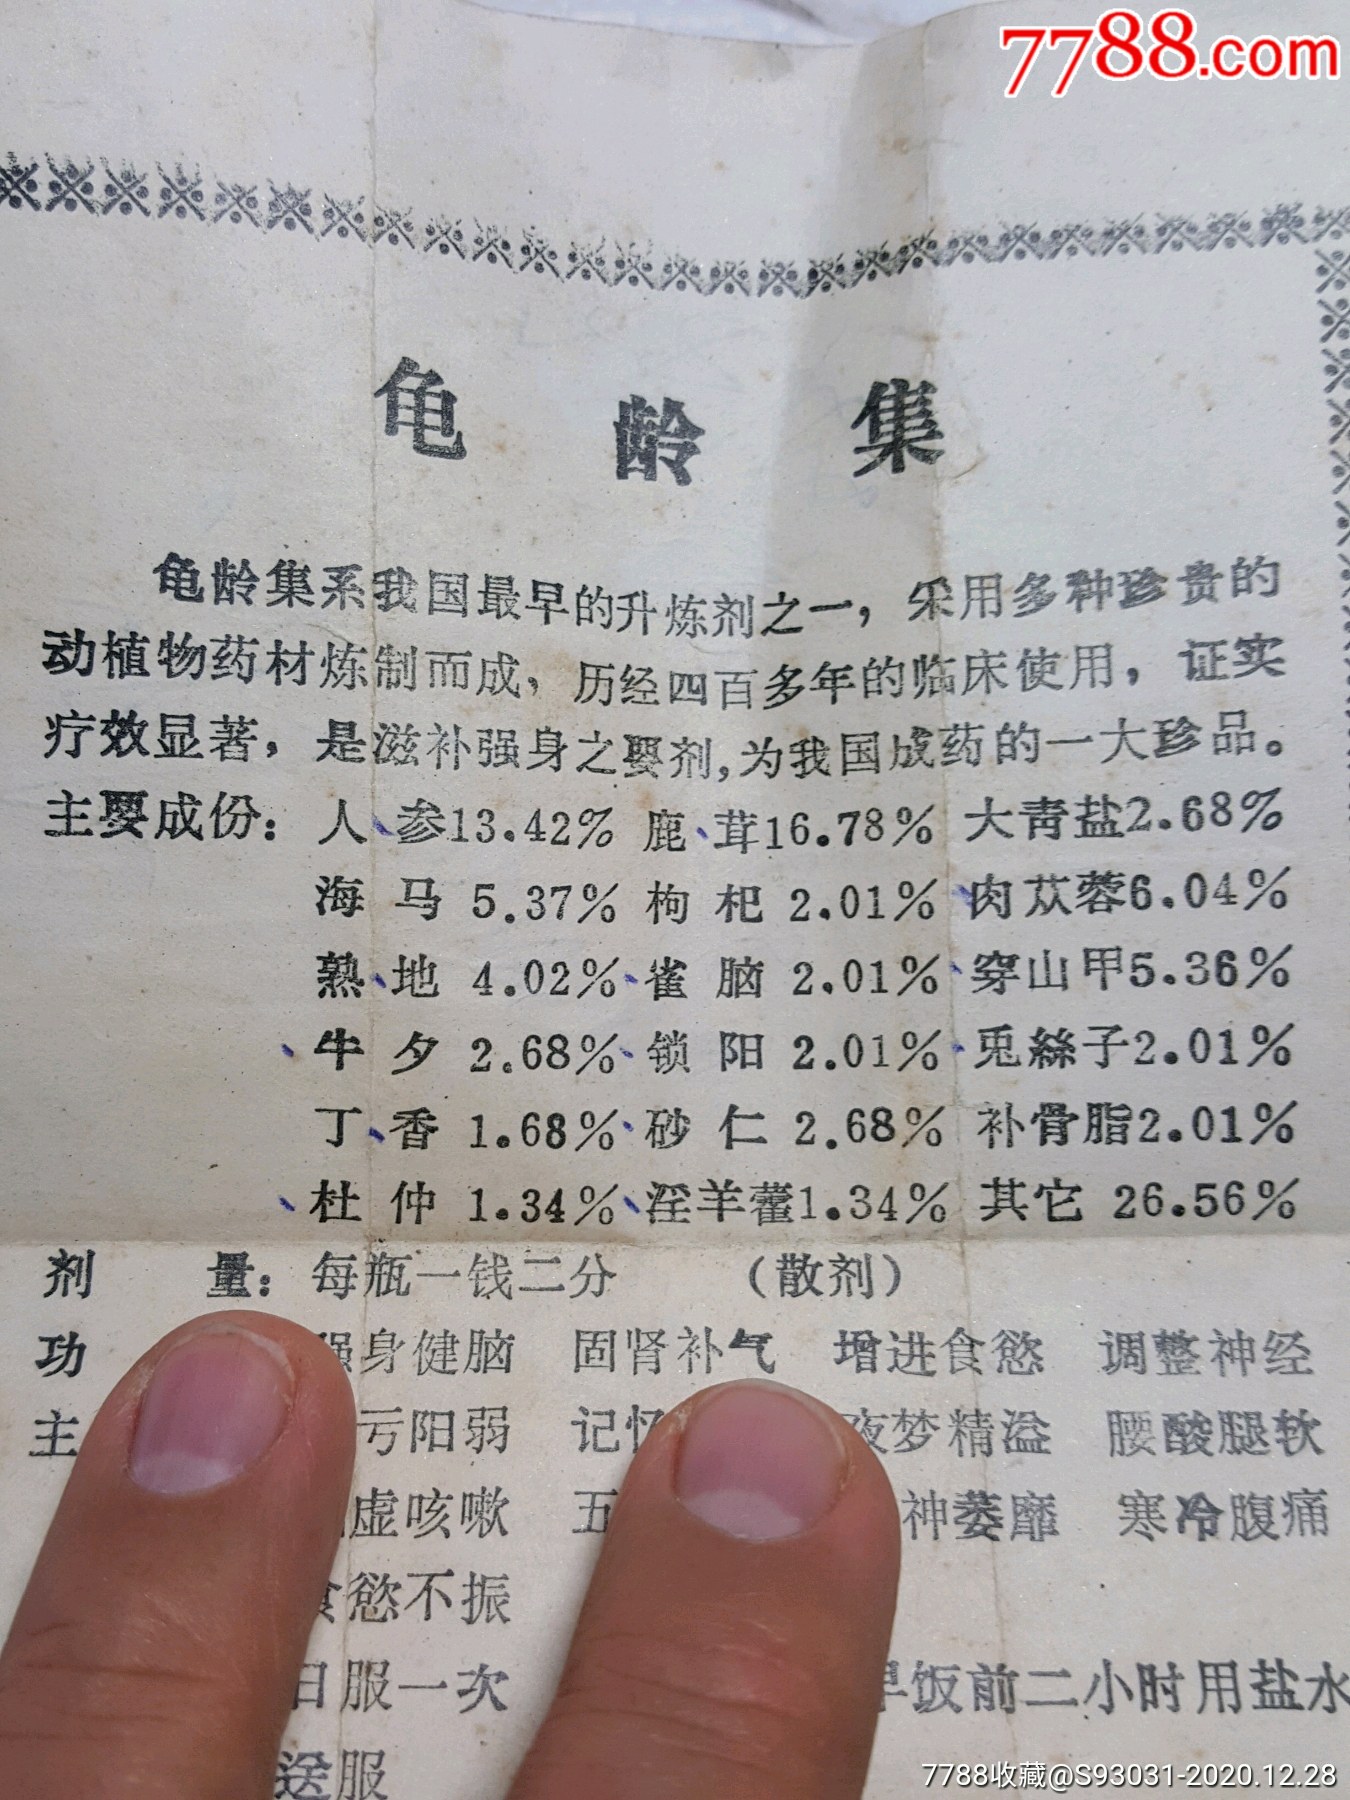 7788.com
龟龄集
龟龄集系我国最早的升炼剂之一，采用多种珍贵的
动植物药材炼制而成，历经四百多年的临床使用，证实
疗效显著，是滋补强身之要剂，为我国成药的一大珍品。
主要成份：人、参13.42% 鹿、茸16.78% 大青盐2.68%
海马 5.37% 枸杞 2.01% 、肉苁蓉6.04%
熟、地 4.02% 、雀脑 2.01% 、穿山甲5.36%
、牛夕 2.68% 、锁阳 2.01% 、兎絲子2.01%
丁、香 1.68% 、砂仁 2.68% 补骨脂2.01%
、杜仲 1.34% 、淫羊藿1.34% 其它 26.56%
剂量：每瓶一钱二分 （散剂）
功 强身健脑 固肾补气 增进食慾 调整神经
主 亏阳弱 记忆 夜梦精溢 腰酸腿软
虚咳嗽 五 神萎靡 寒冷腹痛
食慾不振
日服一次 早饭前二小时用盐水
送服
7788收藏@S93031-2020.12.28